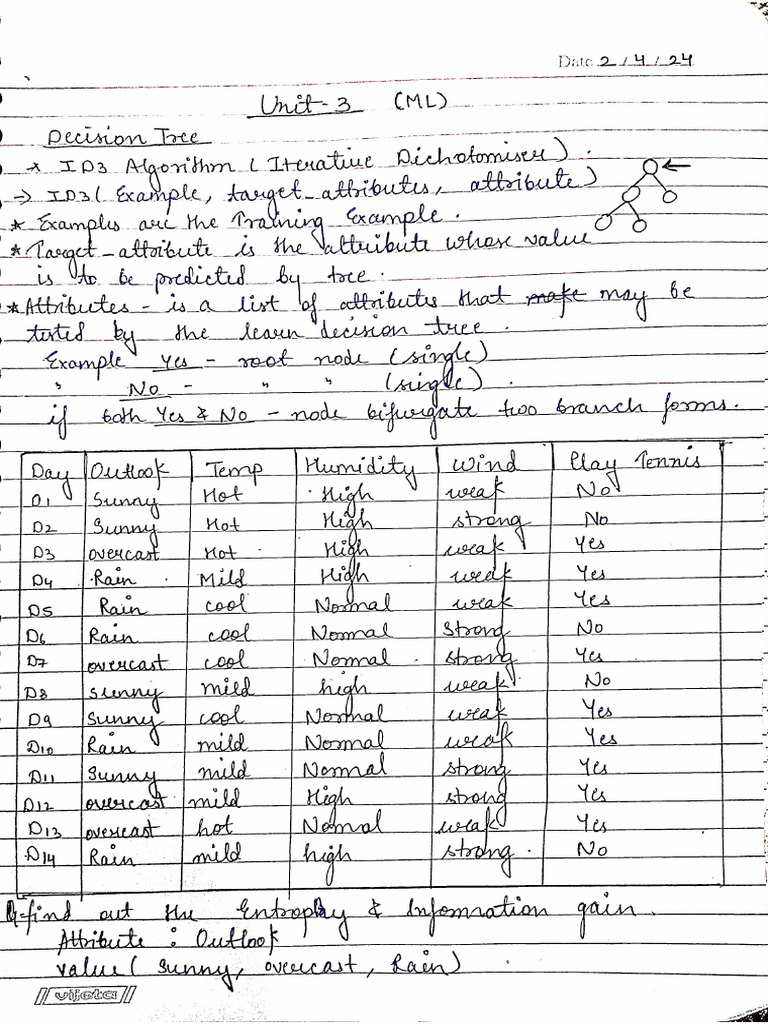 Date 2/4/24
Unit-3 (ML)
Decision Tree
* ID3 Algorithm (Iterative Dichotomiser).
→ ID3(Example, target_attributes, attribute)
* Examples are the Training Example.
* Target_attribute is the attribute whose value
is to be predicted by tree.
* Attributes - is a list of attributes that make may be
tested by the learn decision tree.
Example Yes - root node (single)
" No - " " (single).
if both Yes & No - node bifurgate two branch forms.
Day Outlook Temp Humidity Wind Play Tennis
D1 Sunny Hot High weak No
D2 Sunny Hot High strong No
D3 overcast Hot High weak Yes
D4 Rain Mild High weak Yes
D5 Rain cool Normal weak Yes
D6 Rain cool Normal Strong No
D7 overcast cool Normal strong Yes
D8 sunny mild high weak No
D9 Sunny cool Normal weak Yes
D10 Rain mild Normal weak Yes
D11 Sunny mild Normal strong Yes
D12 overcast mild High strong Yes
D13 overcast hot Nomal weak Yes
D14 Rain mild high strong No
Q-find out the Entrophy & Infomration gain.
Attribute : Outlook
value( sunny, overcast, Rain)
vijeta